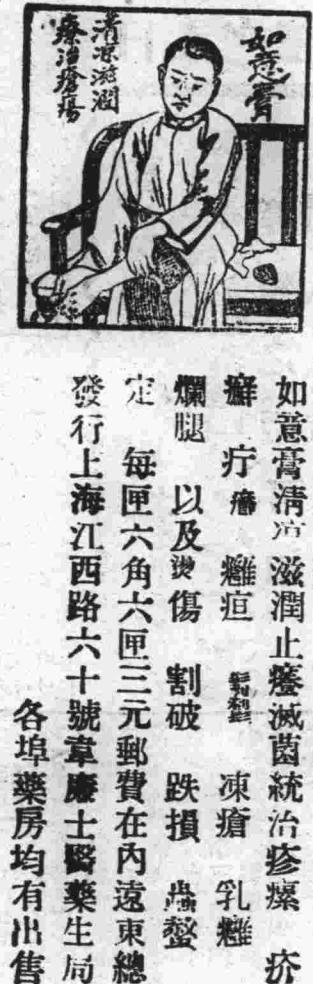 如意膏
清凉滋潤
療治瘡瘍
如意膏清凉滋潤止癢滅菌統治疹瘰 疥
癬 疔瘡 癰疽 凍瘡 乳癰
爛腿 以及燙傷 割破 跌損 蟲螫
定 每匣六角六匣三元郵費在內遠東總
發行上海江西路六十號韋廉士醫藥生局
各埠藥房均有出售